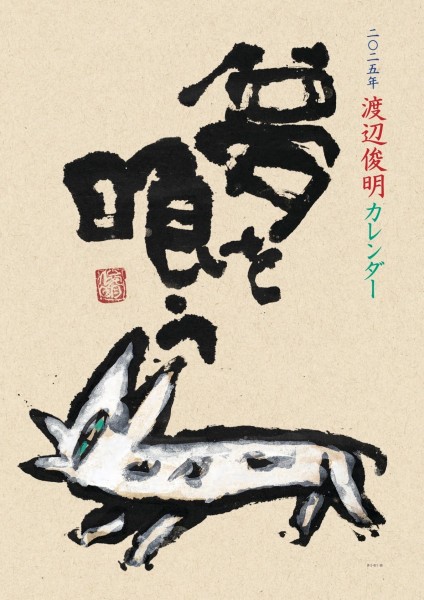 二〇二五年 渡辺俊明カレンダー
夢を
喰う